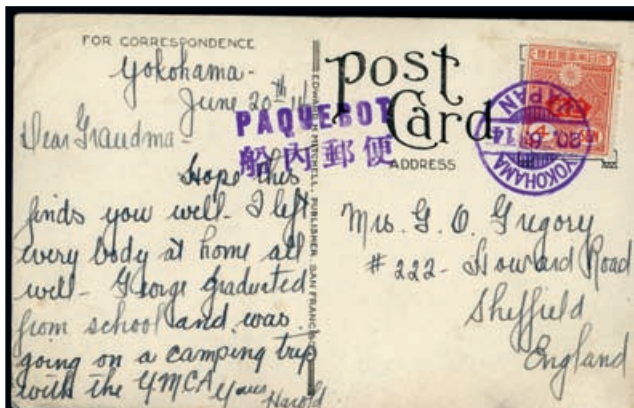 FOR CORRESPONDENCE
Yokohama-
June 20th 14
Dear Grandma-
Hope this
finds you well- I left
every body at home all
well- George graduated
from school and was
going on a camping trip
with the YMCA Yours Harold
PAQUEBOT
船内郵便
EDWARD H. MITCHELL, PUBLISHER, SAN FRANCISCO
Post
Card
ADDRESS
YOKOHAMA
20. 6. 14
JAPAN
Mrs. G. O. Gregory
# 222- Howard Road
Sheffield
England